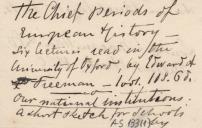 The Chief Periods of
European History —
Six lectures read in the
University of Oxford, by Edward A
Freeman — 1 vol. 118. 68.
Our national institutions.
a short sketch for Schools
by